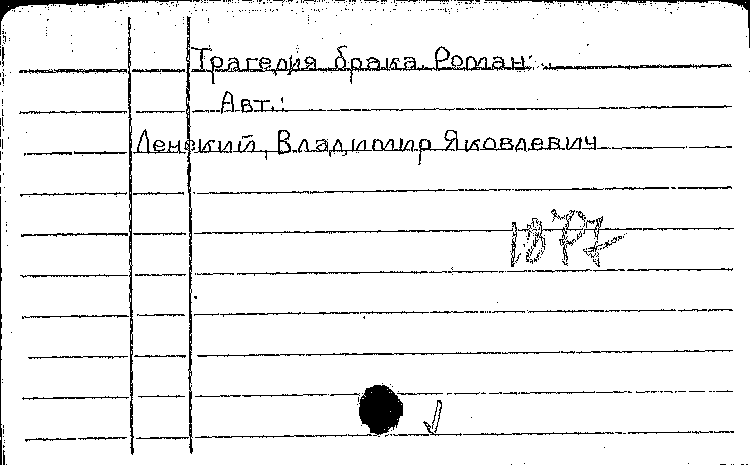 Трагедия брака. Роман...
Авт.:
Ленский, Владимир Яковлевич
1877